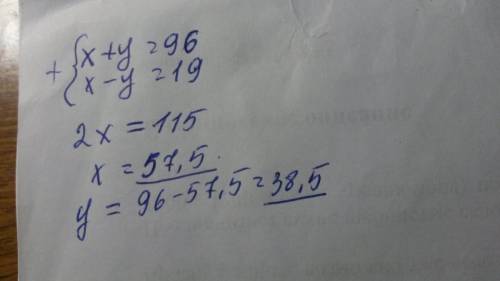 + { x + y = 96
x - y = 19
2x = 115
x = 57,5
y = 96 - 57,5 = 38,5